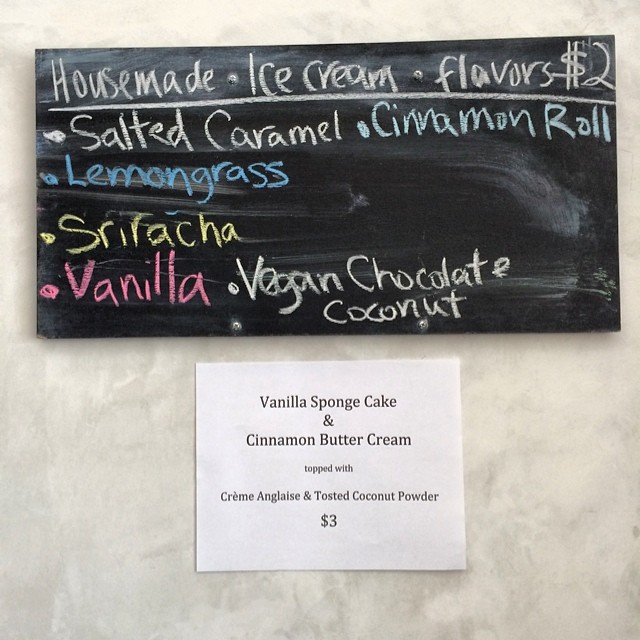 Housemade · Ice cream · flavors $2
• Salted Caramel • Cinnamon Roll
• Lemongrass
• Sriracha
• Vanilla • Vegan Chocolate
coconut
Vanilla Sponge Cake
&
Cinnamon Butter Cream
topped with
Crème Anglaise & Tosted Coconut Powder
$3